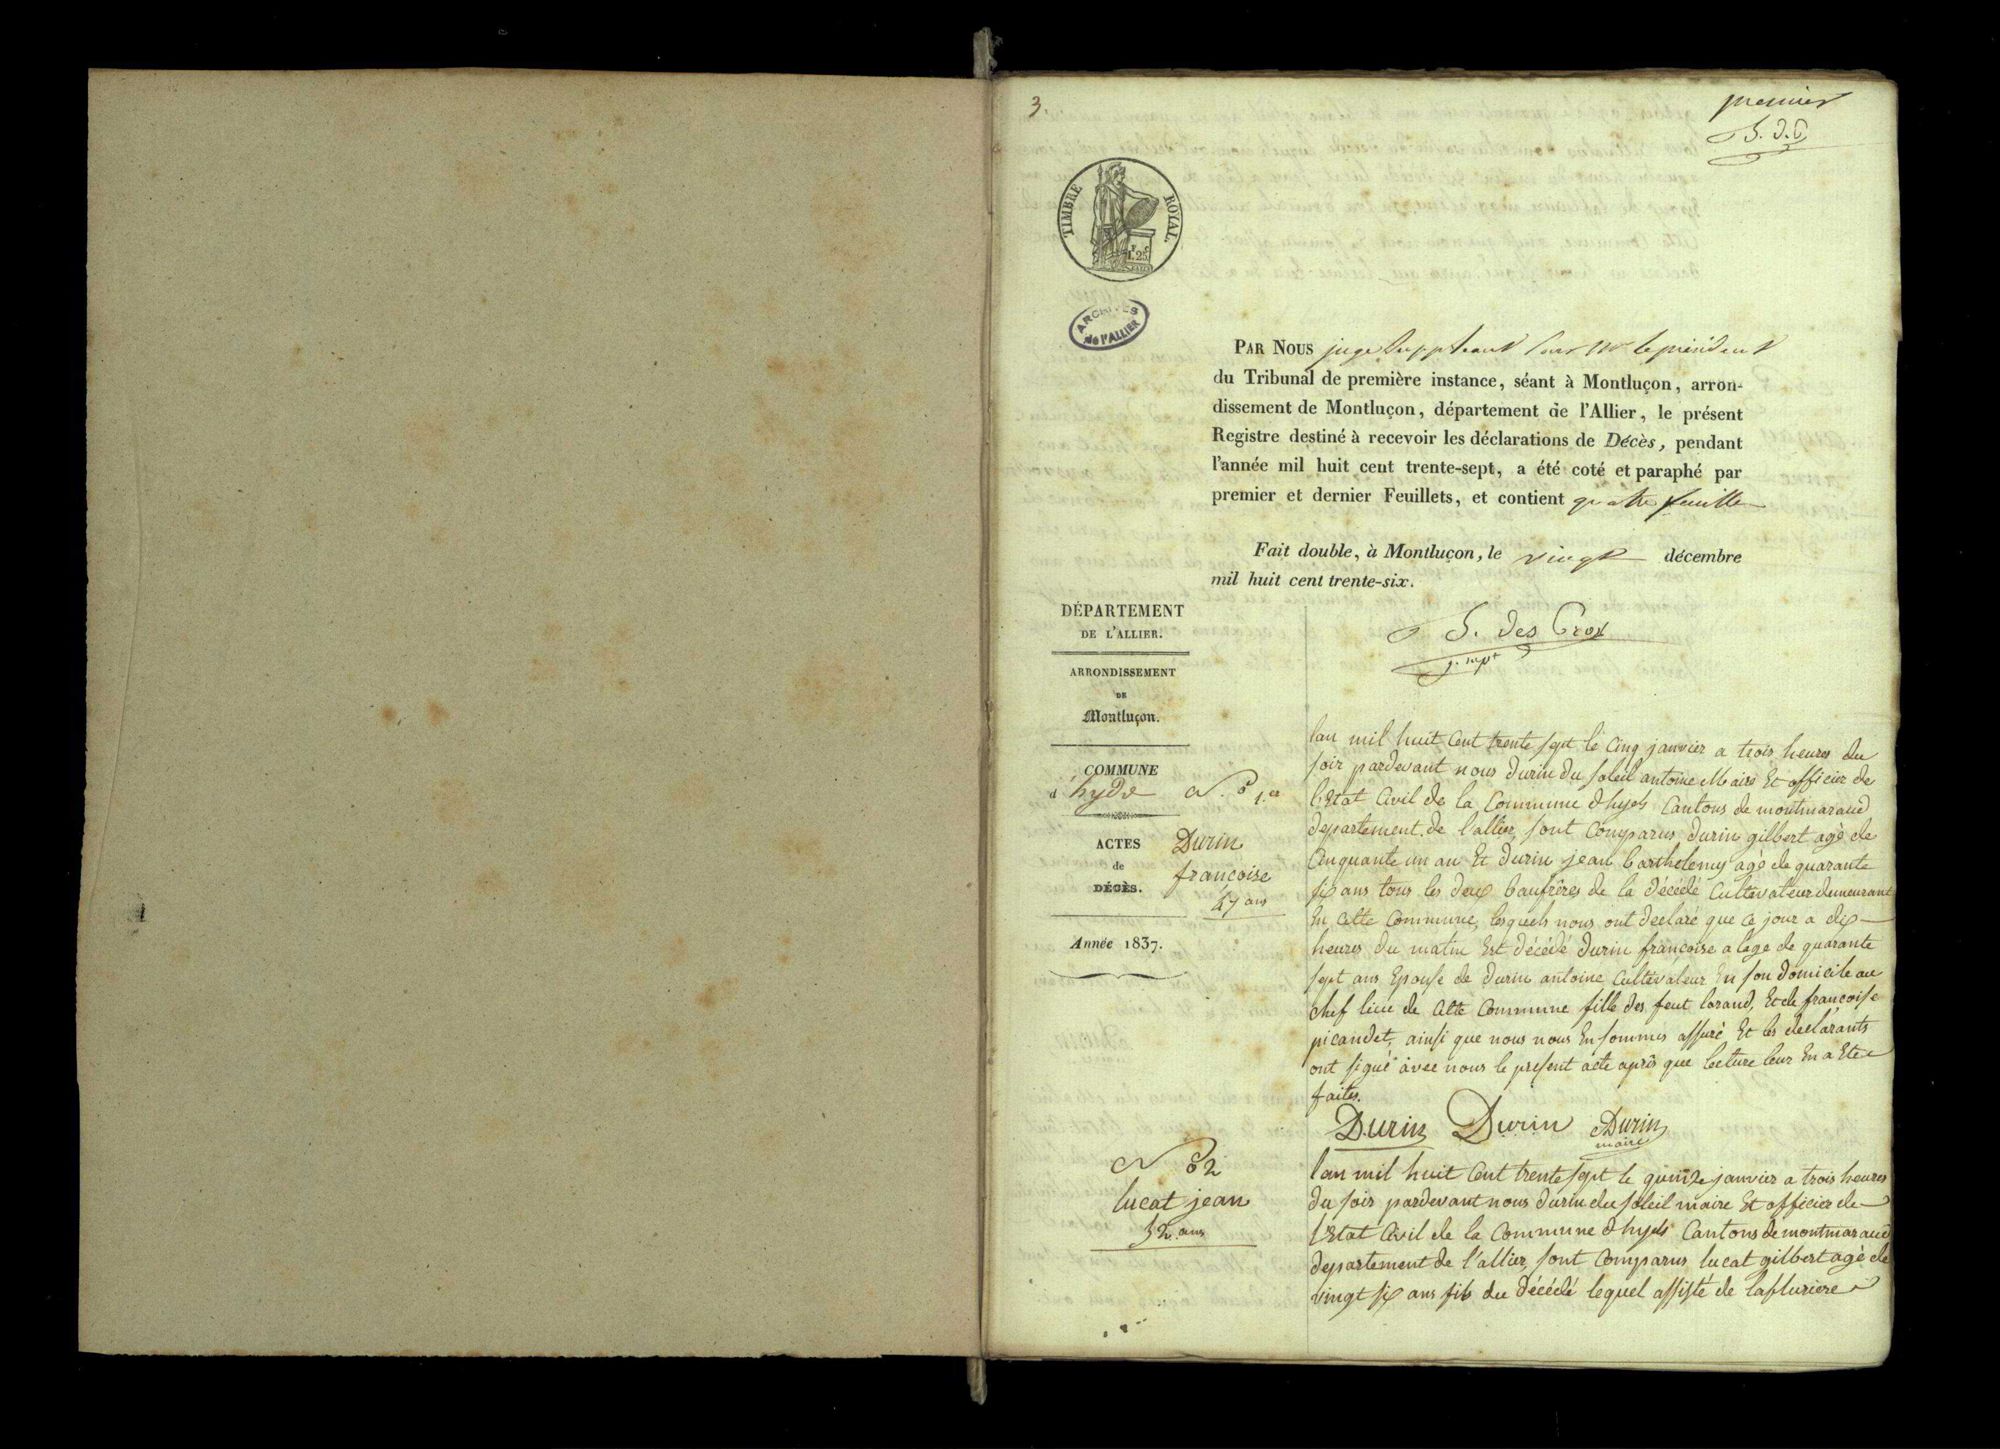 3.
premier
S. d. C
TIMBRE ROYAL.
1. 25
ARCHIVES
de l'ALLIER
PAR NOUS juge Suppleant pour Mr le président
du Tribunal de première instance, séant à Montluçon, arron-
dissement de Montluçon, département de l'Allier, le présent
Registre destiné à recevoir les déclarations de Décès, pendant
l'année mil huit cent trente-sept, a été coté et paraphé par
premier et dernier Feuillets, et contient quatre feuille
Fait double, à Montluçon, le vingt décembre
mil huit cent trente-six.
S. des Crox
DÉPARTEMENT
DE L'ALLIER.
ARRONDISSEMENT
DE
Montluçon.
COMMUNE
d'hyds
N.º 1.er
ACTES
de
DÉCÈS.
Durin
françoise
47 ans
Année 1837.
lan mil huit Cent trente sept le Cinq janvier a trois heures du
soir pardevant nous durin du soleil antoine Maire Et officier de
l'Etat Civil de la Commune d'hyds Cantons de montmaraud
departement de l'allier, sont Comparus durin gilbert agé de
Cinquante un an Et durin jean barthelemy agé de quarante
six ans tous les deux baufrères de la décédé Cultivateur demeurant
En Cette Commune, lesquels nous ont declaré que Ce jour a dix
heures du matin Est décédé durin françoise a lage de quarante
sept ans Epouse de durin antoine Cultivateur En son domicile au
chef lieu de Cette Commune fille des feut lorand, Et de françoise
picandet, ainsi que nous nous En sommes assuré Et les declarants
ont signé avec nous le present acte après que lecture leur En a Eté
faites.
Durin Durin Durin
maire
N º 2
lucat jean
52 ans
lan mil huit Cent trente sept le quinze janvier a trois heures
du soir pardevant nous durin du soleil maire Et officier de
l'Etat Civil de la Commune d'hyds Cantons de montmaraud
departement de l'allier, sont Comparus lucat gilbert agé de
vingt six ans fils du décédé lequel assisté de laflurière